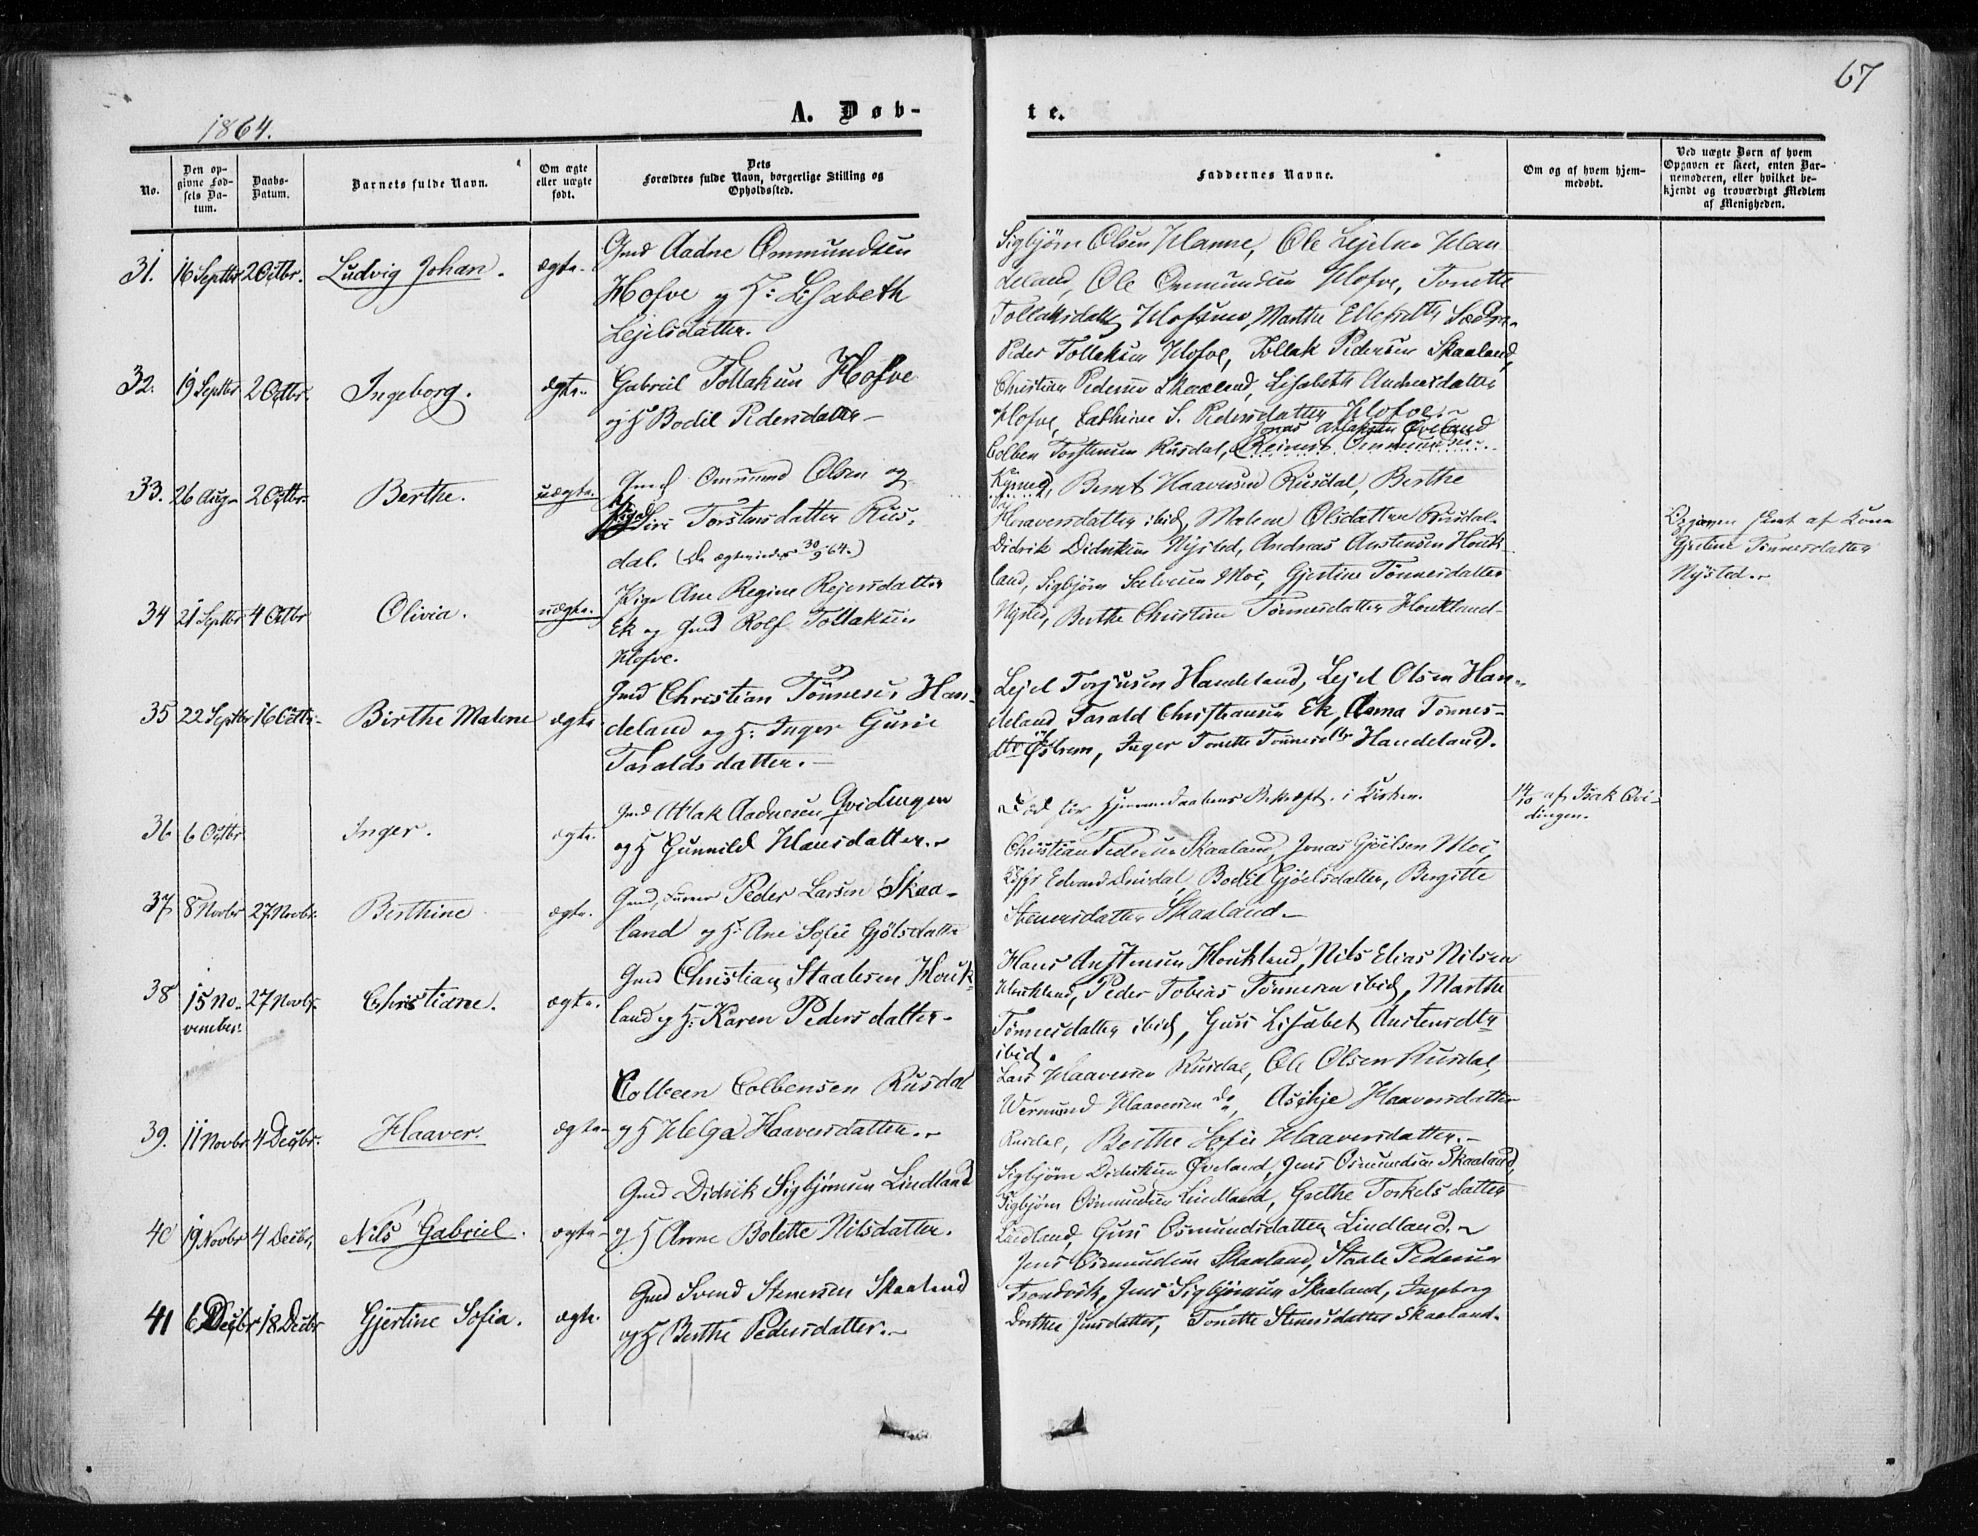 67
1864.
A. Døb-
te.
No.
Den op-
givne Fød-
sels Da-
tum.
Daabs-
Datum.
Barnets fulde Navn.
Om ægte
eller uægte
født.
Dets
Forældres fulde Navn, borgerlige Stilling og
Opholdssted.
Faddernes Navne.
Om og af hvem hjem-
medøbt.
Ved uægte Børn af hvem
Opgaven er skeet, enten Bar-
nemoderen, eller hvilket be-
kjendt og troværdigt Medlem
af Menigheden.
31. 16 Septbr 2 Octbr. Ludvig Johan. ægte.
Gmd Aadne Ommundsen
Hofve og H: Lisabeth
Lejelsdatter.
Sigbjørn Olsen Hanne, Ole Lejelsen Han
deland, Ole Ommundsen Hofve, Tonette
Tollaksdatter
32. 19 Septbr 2 Octbr. Ingeborg. ægte.
Gabriel Tollaksen Hofve
og H Bodil Pedersdatter
Peder Tollaksen Hofve, Tollak Pedersen Skaaland,
Christian Pedersen Skaaland, Lisabeth Andreasdatter
Hofve, Cathrine S. Pedersdatter Hofve.
33. 26 Aug. 2 Octbr. Berthe. uægte.
Omund Olsen og
Siri Torstensdatter Rus-
dal. (De ægteviedes 30/9 64.)
Colben Torstensen Rusdal, Reinert Ommundsen
Øveland
Bernt Haaversen Rusdal, Berthe
Haaversdatter ibid, Malene Olsdatter Rusdal.
34 21 Septbr 4 Octbr Olivia. uægte.
Pige Ane Regine Rejersdatter
Ek og Gmd Rolf Tollaksen
Hofve.
Didrik Didriksen Nysted, Andreas Austensen Houk-
land, Sigbjørn Salvesen Moi, Gjertine Tønnesdatter
Nysted, Berthe Christine Tønnesdatter Houkland
Opgaven skeet af Kone
Gjertine Tønnesdatter
Nysted.
35 22 Septbr 16 Octbr. Birthe Malene ægte
Gmd Christian Tønnesen Han-
deland og H: Inger Gurie
Taraldsdatter.
Lejel Torjusen Handeland, Lejel Olsen Han-
deland, Tarald Christiansen Ek, Anna Tønnes-
dtr Østrem, Inger Tonette Tønnesdtr Handeland.
36 6 Octbr Inger. ægte.
Gmd Atlak Aadnesen Qvidingen
og H Gunnild Hansdatter.
Død før Hjemmedaabens Bekræft. i Kirken.
14/10 af Isak Qvi-
dingen.
37 8 Novbr 27 Novbr. Berthine ægte.
Gmd, Peder Larsen Skaa-
land og H. Ane Sofie Gjølsdatter
Christian Pedersen Skaaland, Jonas Gjøelsen Moi,
Edvard Bodil Gjøelsdatter, Bergitte
Stenersdatter Skaaland.
38 15 No-
vember. 27 Novbr. Christiane. ægte.
Gmd Christian Staalesen Houk-
land og H: Karen Pedersdatter
Hans Austensen Houkland, Nils Elias Nilsen
Houkland, Peder Tobias Tønnesen ibid, Marthe
Tønnesdatter ibid, Guri Lisabet Austensdtr
ibid.
39. 11 Novbr 4 Decbr. Haaver. ægte
Colben Colbensen Rusdal
og H Helga Haaversdatter.
Lars Haaversen Rusdal, Ole Olsen Rusdal,
Wermund Haaversen do, Aschje Haaversdatter
Rusdal, Berthe Sofie Haaversdatter.
40 19 Novbr 4 Decbr. Nils Gabriel. ægte
Gmd Didrik Sigbjørnsen Lindland
og H Anne Bolette Nilsdatter.
Sigbjørn Didriksen Øveland, Jens Osmundsen Skaaland,
Sigbjørn Osmundsen Lindland, Grethe Torkelsdatter
Lindland, Guri Osmundsdatter Lindland.
41 6 Decbr 18 Decbr Gjertine Sofia. ægte.
Gmd Svend Stenersen Skaaland
og H Berthe Pedersdatter.
Jens Osmundsen Skaaland, Staale Pedersen
Trondvik, Jens Sigbjørnsen Skaaland, Ingeborg
Dorthea Jensdatter, Tonette Stenersdatter Skaaland.